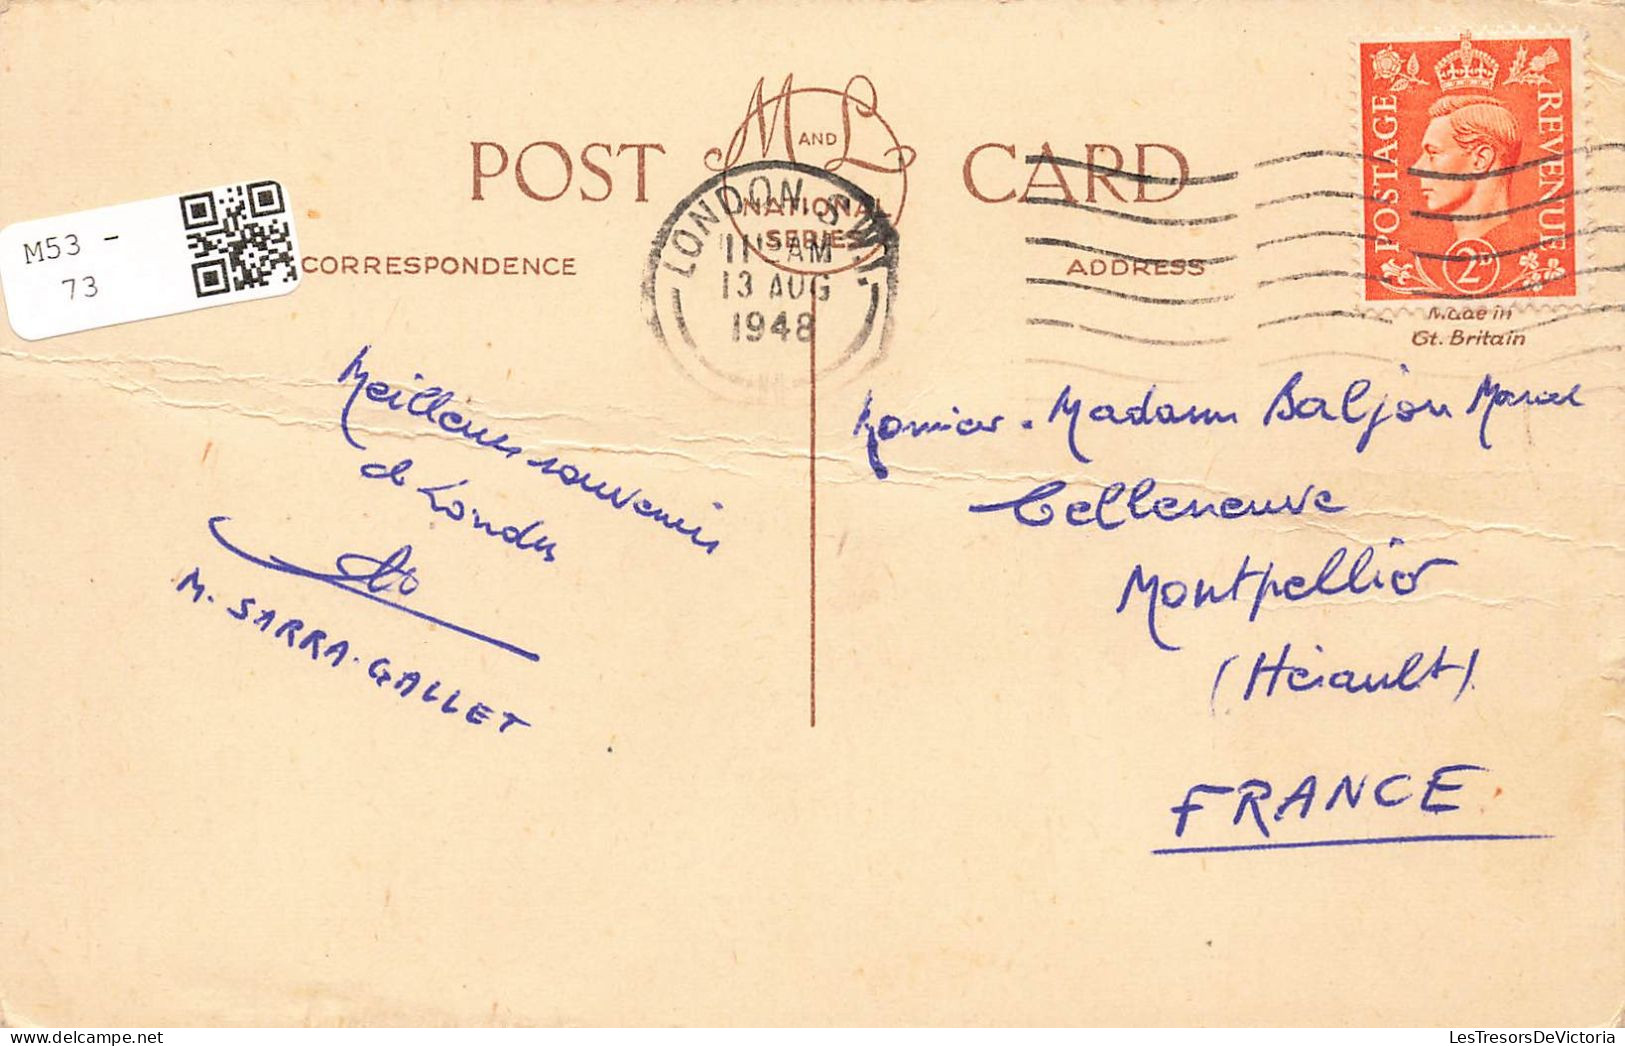 M53 -
73
POST CARD
M AND L
NATIONAL
SERIES
LONDON. S.W.1.
11 AM
13 AUG
1948
CORRESPONDENCE
ADDRESS
POSTAGE
REVENUE
2D
Made in
Gt. Britain
Meilleurs souvenirs
de Londres
M. SARRA-GALLET
Madame Baljou Marcel
Celleneuve
Montpellier
(Hérault)
FRANCE
LesTresorsDeVictoria